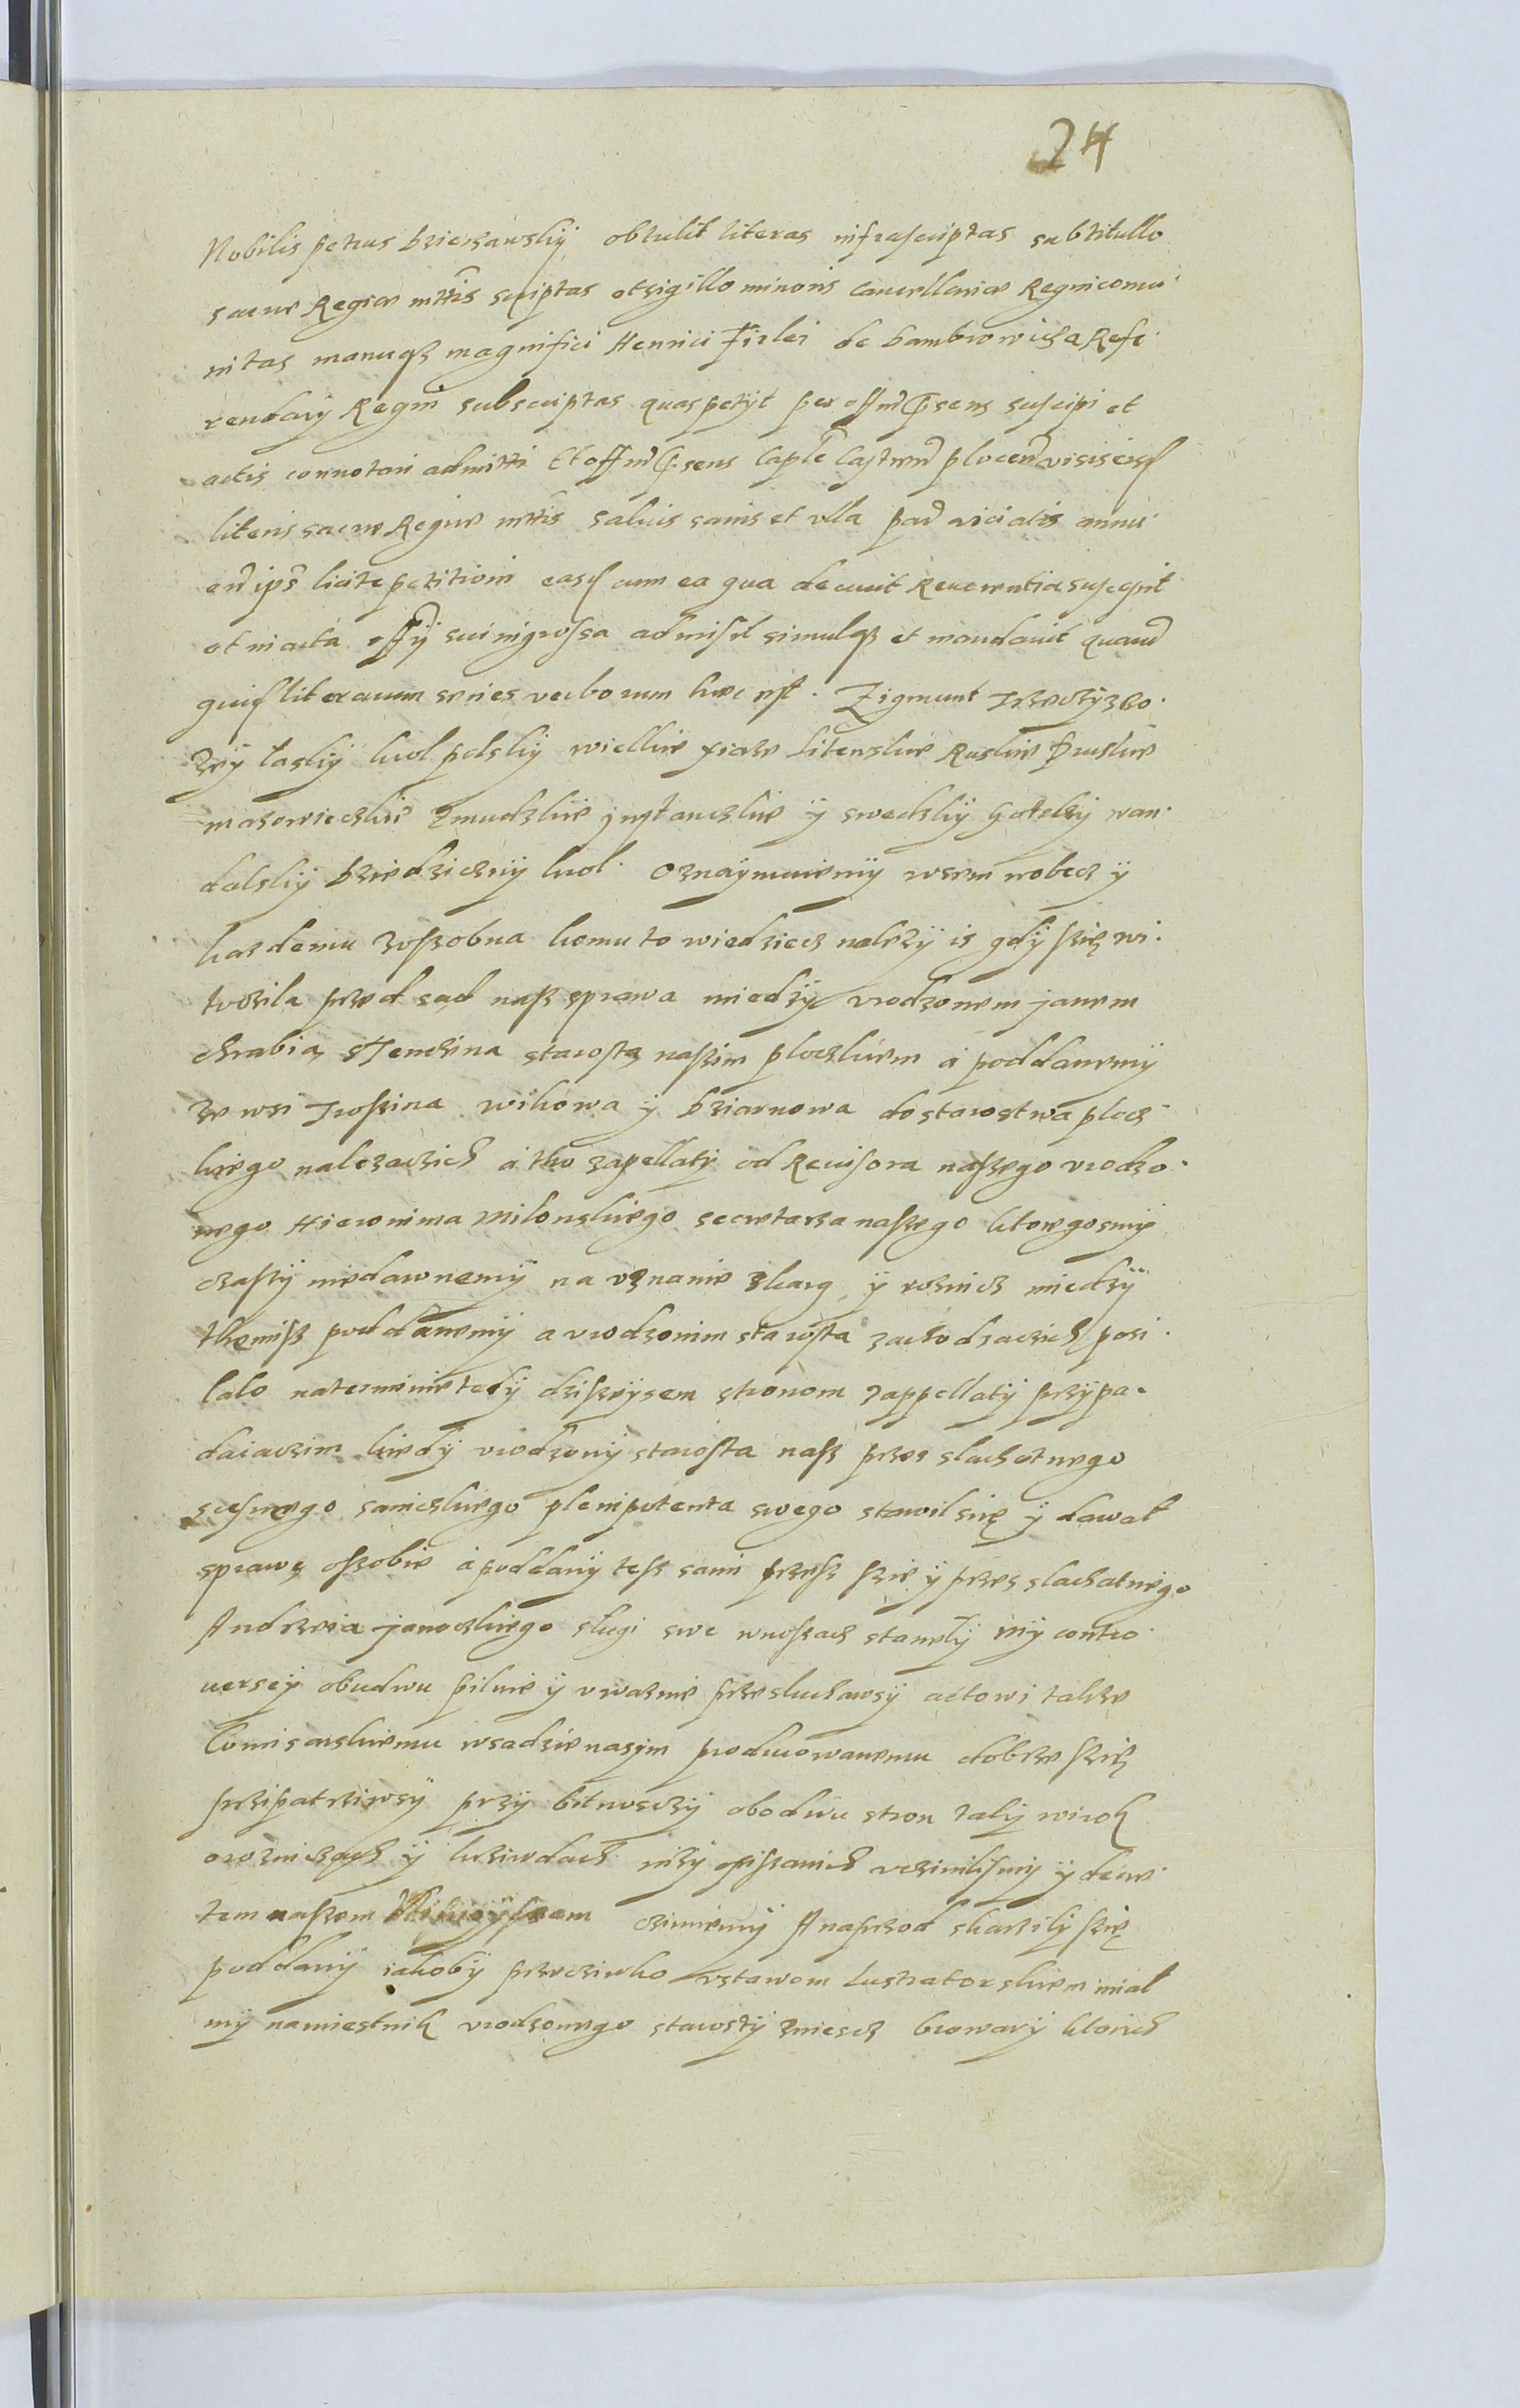 24
Nobilis petrus brierawskÿ obtulit literas infrascriptas subtitullo
sacrae Regiae mttis scriptas et sigillo minoris Cancellariae Regni comu
nitas manuqz magnifici Henrici Firlei de dambrowicza Refe
rendarÿ Regni subscriptas quas petÿt per offm psens suscipi et
actis connotari admitti Et offm psens Caple Castren plocen visis eisd
literis sacrae Regiae mttis saluis sanis et ulla par viciatis annu
en ips licite petitioni easd cum ea qua decuit Reverentia suscepit
et in acta offÿ sui ingrossa admisit simulqz et mandavit quar
quid literarum series verborum haec est. Zigmunt Trzeczÿ zbo
zeÿ laskÿ krol polskÿ wielkie xiaze Litewskie Ruskie Pruskie
mazowieczkie Zmudzkie jnflanczkie ÿ swedzkÿ gotckÿ wan
dalskÿ dziedzicznÿ krol. Oznaÿmuiemÿ wsem wobecz ÿ
kazdemu zossobna komu to wiedziecz nalezÿ is gdÿ sszię wi
toczila przed sąd nasz sprawa miedzÿ urodzonem janem
chrabią sTenczina starostą naszim ploczkiem á poddanemÿ
ze wsi Trossina wikowa ÿ bziarnowa do starostwa plocz
kiego nalezaczich á tho zapellatÿ od Reuisora naszego urodzo
nego Hieronima Milonskiego secretarza naszego ktoregosmÿ
czassÿ niedawnemÿ na uznanie skarg ÿ roznicz miedzÿ
themisz poddanemÿ a urodzonim starosta zachodzaczich posi
lalo na terminie tedÿ dziszeÿsem stronom zappellatÿ przÿpa
daiaczim kiedÿ urodzonÿ starosta nasz przes slachetnego
sczesnego saniczkiego plenipotenta swego stawil się ÿ dawal
sprawę osszobie á poddanÿ tesz sami przesz szie ÿ przes slachetnego
Andrzeia janoczkiego slugi swe wnoszacz stanelÿ mÿ contro
uersÿ obudwu pilnie ÿ uwaznie przesluchawsÿ actowi takze
Comisarskiemu wsadzie nasÿm producowanemu dobrze sszię
przipatrziwsÿ przÿ bitnosczÿ obodwu stron takÿ wirok
oroznicach ÿ krziwdach nizÿ opisanich uczinilismÿ ÿ decre
tem naszem cziniemÿ A naprzod skarzilÿ szię
poddanÿ iakobÿ przecziwko ustawom Lustratorskiem mial
mÿ namiestnik urodzonego starostÿ zniescz browarÿ ktorich